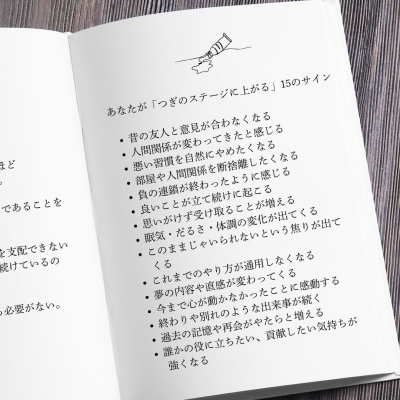 ほど
。
であることを
を支配できない
続けているの
必要がない。
あなたが「つぎのステージに上がる」15のサイン
• 昔の友人と意見が合わなくなる
• 人間関係が変わってきたと感じる
• 悪い習慣を自然にやめたくなる
• 部屋や人間関係を断捨離したくなる
• 負の連鎖が終わったように感じる
• 良いことが立て続けに起こる
• 思いがけず受け取ることが増える
• 眠気・だるさ・体調の変化が出てくる
• このままじゃいられないという焦りが出て
くる
• これまでのやり方が通用しなくなる
• 夢の内容や直感が変わってくる
• 今まで心が動かなかったことに感動する
• 終わりや別れのような出来事が続く
• 過去の記憶や再会がやたらと増える
• 誰かの役に立ちたい、貢献したい気持ちが
強くなる